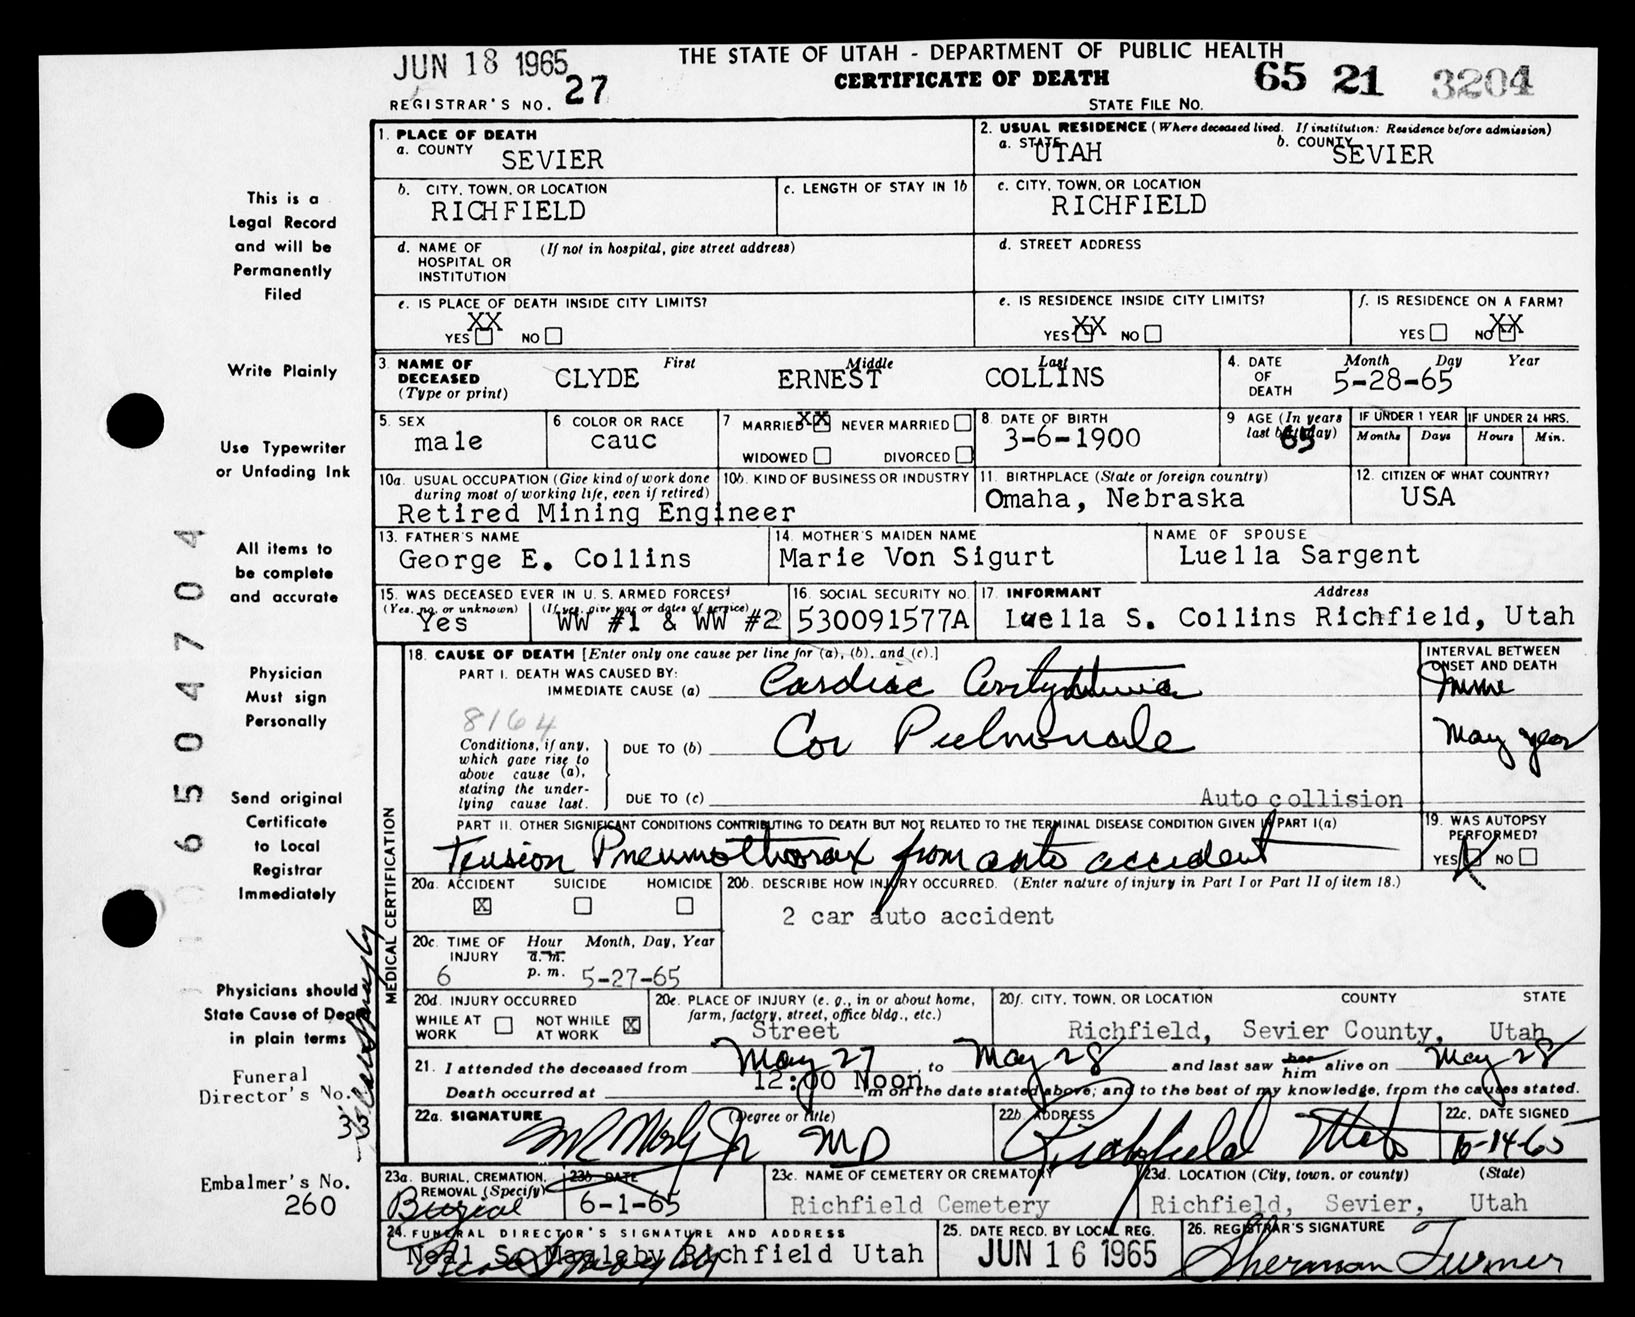 JUN 18 1965
THE STATE OF UTAH - DEPARTMENT OF PUBLIC HEALTH
CERTIFICATE OF DEATH
65 21 3204
REGISTRAR'S NO. 27
STATE FILE NO.
This is a
Legal Record
and will be
Permanently
Filed
Write Plainly
Use Typewriter
or Unfading Ink
All items to
be complete
and accurate
Physician
Must sign
Personally
Send original
Certificate
to Local
Registrar
Immediately
Physicians should
State Cause of Death
in plain terms
Funeral
Director's No.
Embalmer's No.
260
650 4704
1. PLACE OF DEATH
a. COUNTY SEVIER
2. USUAL RESIDENCE (Where deceased lived. If institution: Residence before admission)
a. STATE UTAH b. COUNTY SEVIER
b. CITY, TOWN, OR LOCATION RICHFIELD
c. LENGTH OF STAY IN 1b
c. CITY, TOWN, OR LOCATION RICHFIELD
d. NAME OF HOSPITAL OR INSTITUTION (If not in hospital, give street address)
d. STREET ADDRESS
e. IS PLACE OF DEATH INSIDE CITY LIMITS?
YES XX NO
e. IS RESIDENCE INSIDE CITY LIMITS?
YES XX NO
f. IS RESIDENCE ON A FARM?
YES NO XX
3. NAME OF DECEASED (Type or print) First Middle Last
CLYDE ERNEST COLLINS
4. DATE OF DEATH Month Day Year
5-28-65
5. SEX male
6 COLOR OR RACE cauc
7 MARRIED XX NEVER MARRIED
WIDOWED DIVORCED
8 DATE OF BIRTH 3-6-1900
9 AGE (In years last birthday) 65
IF UNDER 1 YEAR Months Days
IF UNDER 24 HRS. Hours Min.
10a. USUAL OCCUPATION (Give kind of work done during most of working life, even if retired)
Retired Mining Engineer
10b. KIND OF BUSINESS OR INDUSTRY
11. BIRTHPLACE (State or foreign country)
Omaha, Nebraska
12. CITIZEN OF WHAT COUNTRY?
USA
13. FATHER'S NAME
George E. Collins
14. MOTHER'S MAIDEN NAME
Marie Von Sigurt
NAME OF SPOUSE
Luella Sargent
15. WAS DECEASED EVER IN U. S. ARMED FORCES?
(Yes, no, or unknown) (If yes, give war or dates of service)
Yes WW #1 & WW #2
16. SOCIAL SECURITY NO.
530091577A
17. INFORMANT Address
Luella S. Collins Richfield, Utah
MEDICAL CERTIFICATION
18. CAUSE OF DEATH [Enter only one cause per line for (a), (b), and (c).]
INTERVAL BETWEEN ONSET AND DEATH
PART I. DEATH WAS CAUSED BY:
IMMEDIATE CAUSE (a) Cardiac
8164
Conditions, if any, which gave rise to above cause (a), stating the underlying cause last.
DUE TO (b) Cor Pulmonale
May year
DUE TO (c) Auto collision
PART II. OTHER SIGNIFICANT CONDITIONS CONTRIBUTING TO DEATH BUT NOT RELATED TO THE TERMINAL DISEASE CONDITION GIVEN IN PART I(a)
Tension Pneumothorax from auto accident
19. WAS AUTOPSY PERFORMED?
YES X NO
20a. ACCIDENT SUICIDE HOMICIDE
X
20b. DESCRIBE HOW INJURY OCCURRED. (Enter nature of injury in Part I or Part II of item 18.)
2 car auto accident
20c. TIME OF INJURY Hour a. m. p. m. Month, Day, Year
6 5-27-65
20d. INJURY OCCURRED
WHILE AT WORK NOT WHILE AT WORK X
20e. PLACE OF INJURY (e. g., in or about home, farm, factory, street, office bldg., etc.)
Street
20f. CITY, TOWN, OR LOCATION COUNTY STATE
Richfield, Sevier County, Utah
21. I attended the deceased from May 27, to May 28 and last saw her him alive on May 28
Death occurred at 12:00 Noon m on the date stated above; and to the best of my knowledge, from the causes stated.
22a. SIGNATURE (Degree or title)
MD
22b. ADDRESS
Richfield Utah
22c. DATE SIGNED
6-14-65
23a. BURIAL, CREMATION, REMOVAL (Specify)
Burial
23b. DATE
6-1-65
23c. NAME OF CEMETERY OR CREMATORY
Richfield Cemetery
23d. LOCATION (City, town, or county) (State)
Richfield, Sevier, Utah
24. FUNERAL DIRECTOR'S SIGNATURE AND ADDRESS
Neal S. Magleby Richfield Utah
25. DATE RECD. BY LOCAL REG.
JUN 16 1965
26. REGISTRAR'S SIGNATURE
Sherman Turner